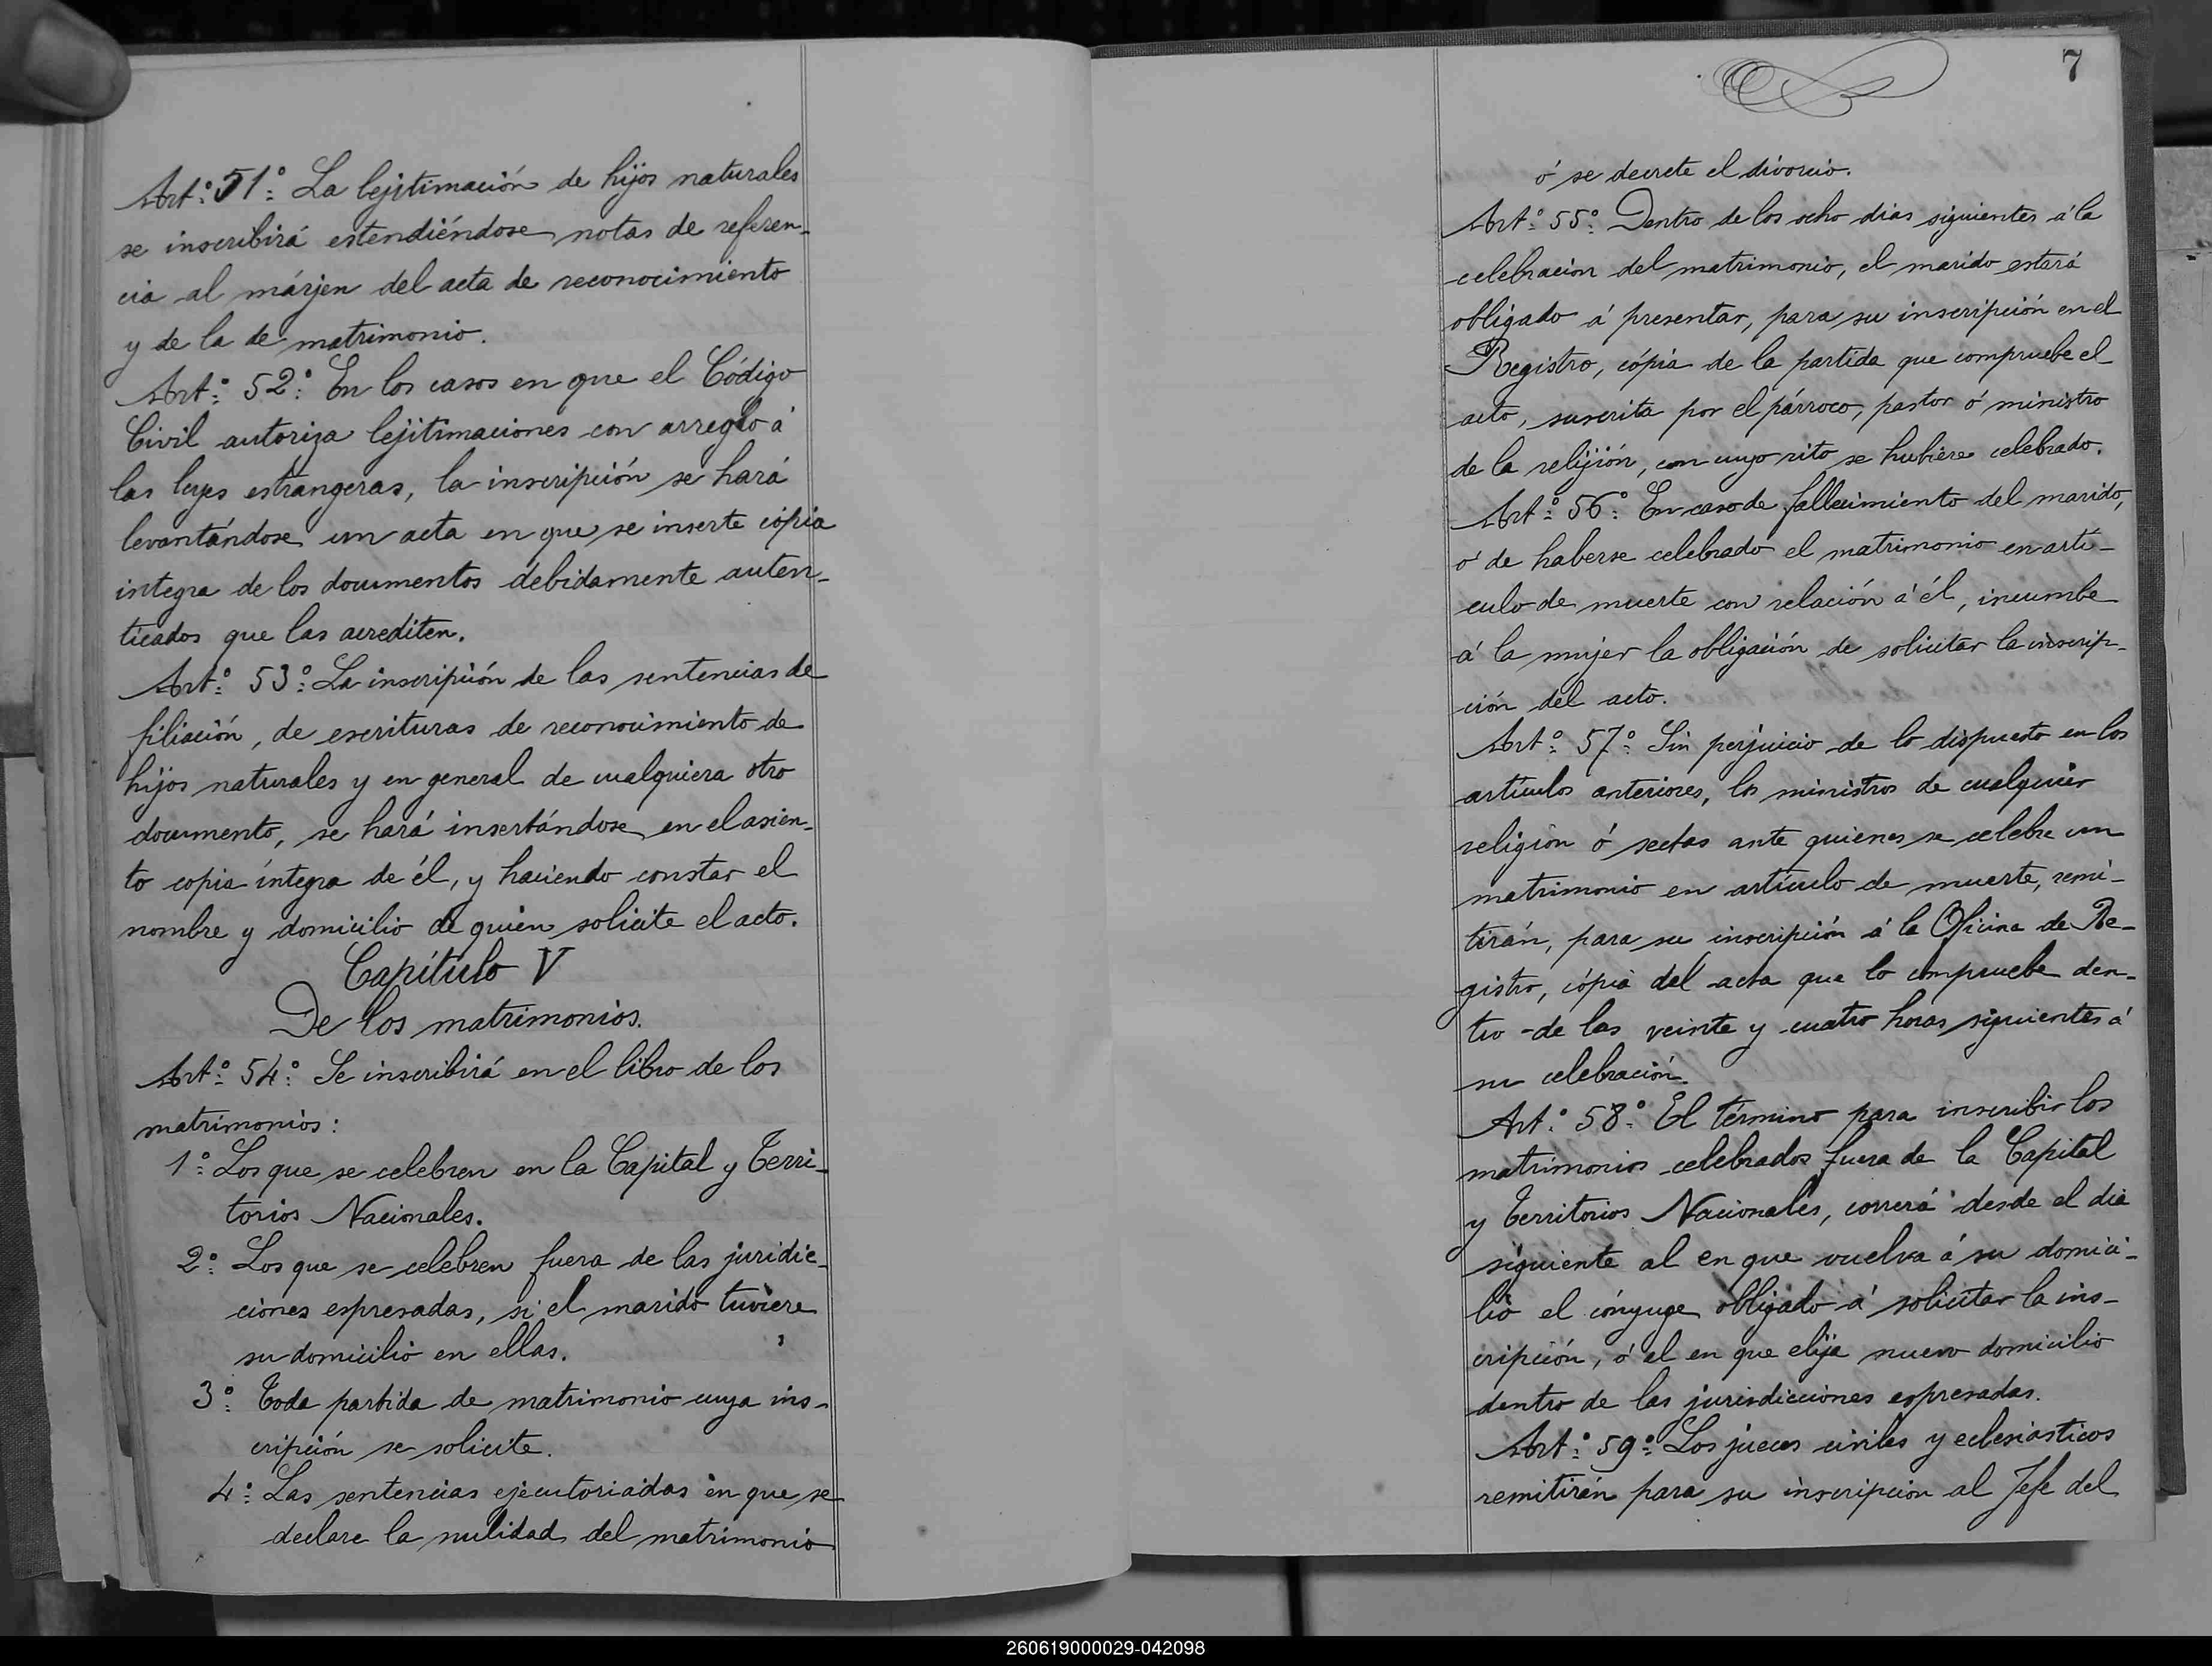 Art.º 51º. La lejitimación de hijos naturales
se inscribirá estendiéndose notas de referen-
cia al márjen del acta de reconocimiento
y de la de matrimonio.
Art.º 52º. En los casos en que el Código
Civil autoriza lejitimaciones con arreglo á
las leyes estrangeras, la inscripción se hará
levantándose un acta en que se inserte cópia
integra de los documentos debidamente auten-
ticados que las acrediten.
Art.º 53º. La inscripción de las sentencias de
filiación, de escrituras de reconocimiento de
hijos naturales y en general de cualquiera otro
documento, se hará insertándose en el asien-
to copia íntegra de él, y haciendo constar el
nombre y domicilio de quien solicite el acto.
Capítulo V
De los matrimonios.
Art.º 54º. Se inscribirá en el libro de los
matrimonios:
1º. Los que se celebren en la Capital y Terri-
torios Nacionales.
2º. Los que se celebren fuera de las juridic-
ciones espresadas, si el marido tuviere
su domicilio en ellas.
3º. Toda partida de matrimonio cuya ins-
cripción se solicite.
4º. Las sentencias ejecutoriadas en que se
declare la nulidad del matrimonio
7
ó se decrete el divorcio.
Art.º 55º. Dentro de los ocho dias siguientes á la
celebracion del matrimonio, el marido estará
obligado á presentar, para su inscripción en el
Registro, cópia de la partida que compruebe el
acto, suscrita por el párroco, pastor ó ministro
de la relijión, con cuyo rito se hubiere celebrado.
Art.º 56º. En caso de fallecimiento del marido,
ó de haberse celebrado el matrimonio en artí-
culo de muerte con relación á él, incumbe
á la mujer la obligación de solicitar la inscrip-
ción del acto.
Art.º 57º. Sin perjuicio de lo dispuesto en los
artículos anteriores, los ministros de cualquier
religion ó sectas ante quienes se celebre un
matrimonio en artículo de muerte, remi-
tirán, para su inscripción á la Oficina de Re-
gistro, cópia del acta que lo compruebe den-
tro de las veinte y cuatro horas siguientes á
su celebración.
Art.º 58º. El término para inscribir los
matrimonios celebrados fuera de la Capital
y Territorios Nacionales, correrá desde el dia
siguiente al en que vuelva á su domici-
lio el cónyuge obligado á solicitar la ins-
cripción, ó el en que elija nuevo domicilio
dentro de las jurisdicciones espresadas.
Art.º 59º. Los jueces civiles y eclesiásticos
remitirán para su inscripcion al Jefe del
260619000029-042098